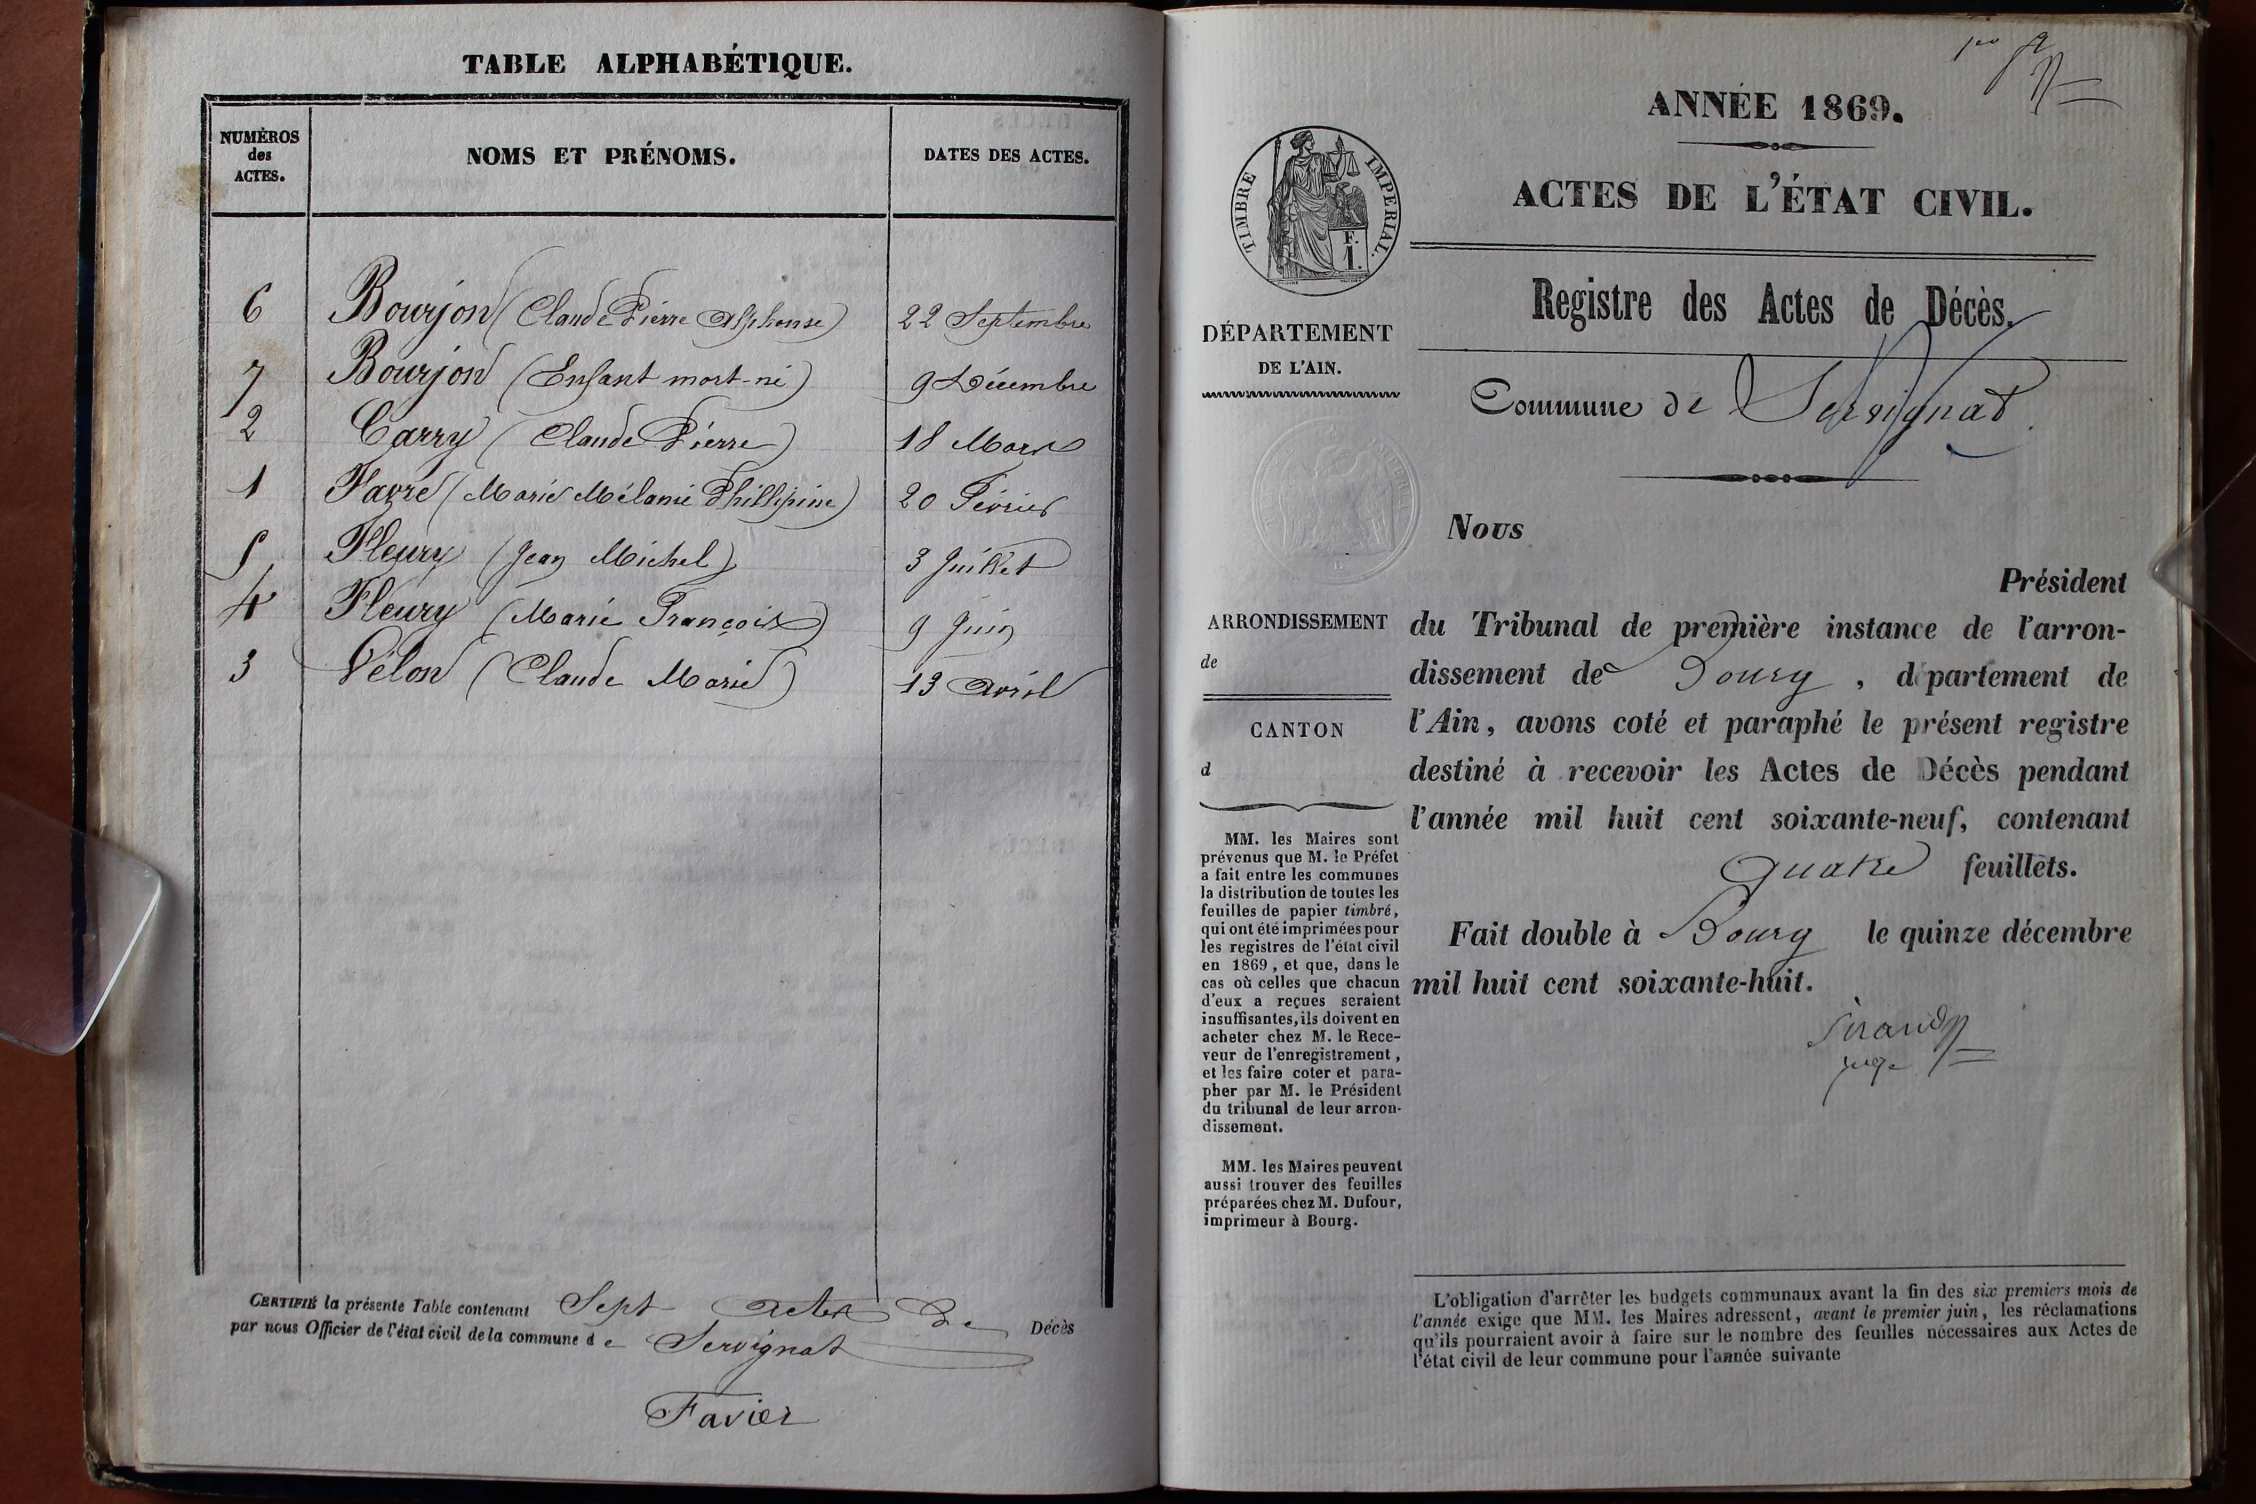 TABLE ALPHABÉTIQUE.
NUMÉROS
des
ACTES.
NOMS ET PRÉNOMS.
DATES DES ACTES.
6 Bourjon (Claude Pierre Alphonse) 22 Septembre
7 Bourjon (Enfant mort-né) 9 Décembre
2 Carry (Claude Pierre) 18 Mars
1 Favre (Marie Mélanie Phillipine) 20 Février
5 Fleury (Jean Michel) 3 Juillet
4 Fleury (Marie François) 9 Juin
3 Vélon (Claude Marie) 13 Avril
CERTIFIÉ la présente Table contenant Sept Actes de Décès
par nous Officier de l'état civil de la commune de Servignat
Favier
ANNÉE 1869.
ACTES DE L'ÉTAT CIVIL.
TIMBRE IMPERIAL.
F.
1.
Registre des Actes de Décès.
DÉPARTEMENT
DE L'AIN.
Commune de Servignat
Nous
Président
du Tribunal de première instance de l'arron-
dissement de Bourg, département de
l'Ain, avons coté et paraphé le présent registre
destiné à recevoir les Actes de Décès pendant
l'année mil huit cent soixante-neuf, contenant
quatre feuillets.
Fait double à Bourg le quinze décembre
mil huit cent soixante-huit.
juge
ARRONDISSEMENT
de
CANTON
d
MM. les Maires sont
prévenus que M. le Préfet
a fait entre les communes
la distribution de toutes les
feuilles de papier timbré,
qui ont été imprimées pour
les registres de l'état civil
en 1869, et que, dans le
cas où celles que chacun
d'eux a reçues seraient
insuffisantes, ils doivent en
acheter chez M. le Rece-
veur de l'enregistrement,
et les faire coter et para-
pher par M. le Président
du tribunal de leur arron-
dissement.
MM. les Maires peuvent
aussi trouver des feuilles
préparées chez M. Dufour,
imprimeur à Bourg.
L'obligation d'arrêter les budgets communaux avant la fin des six premiers mois de
l'année exige que MM. les Maires adressent, avant le premier juin, les réclamations
qu'ils pourraient avoir à faire sur le nombre des feuilles nécessaires aux Actes de
l'état civil de leur commune pour l'année suivante